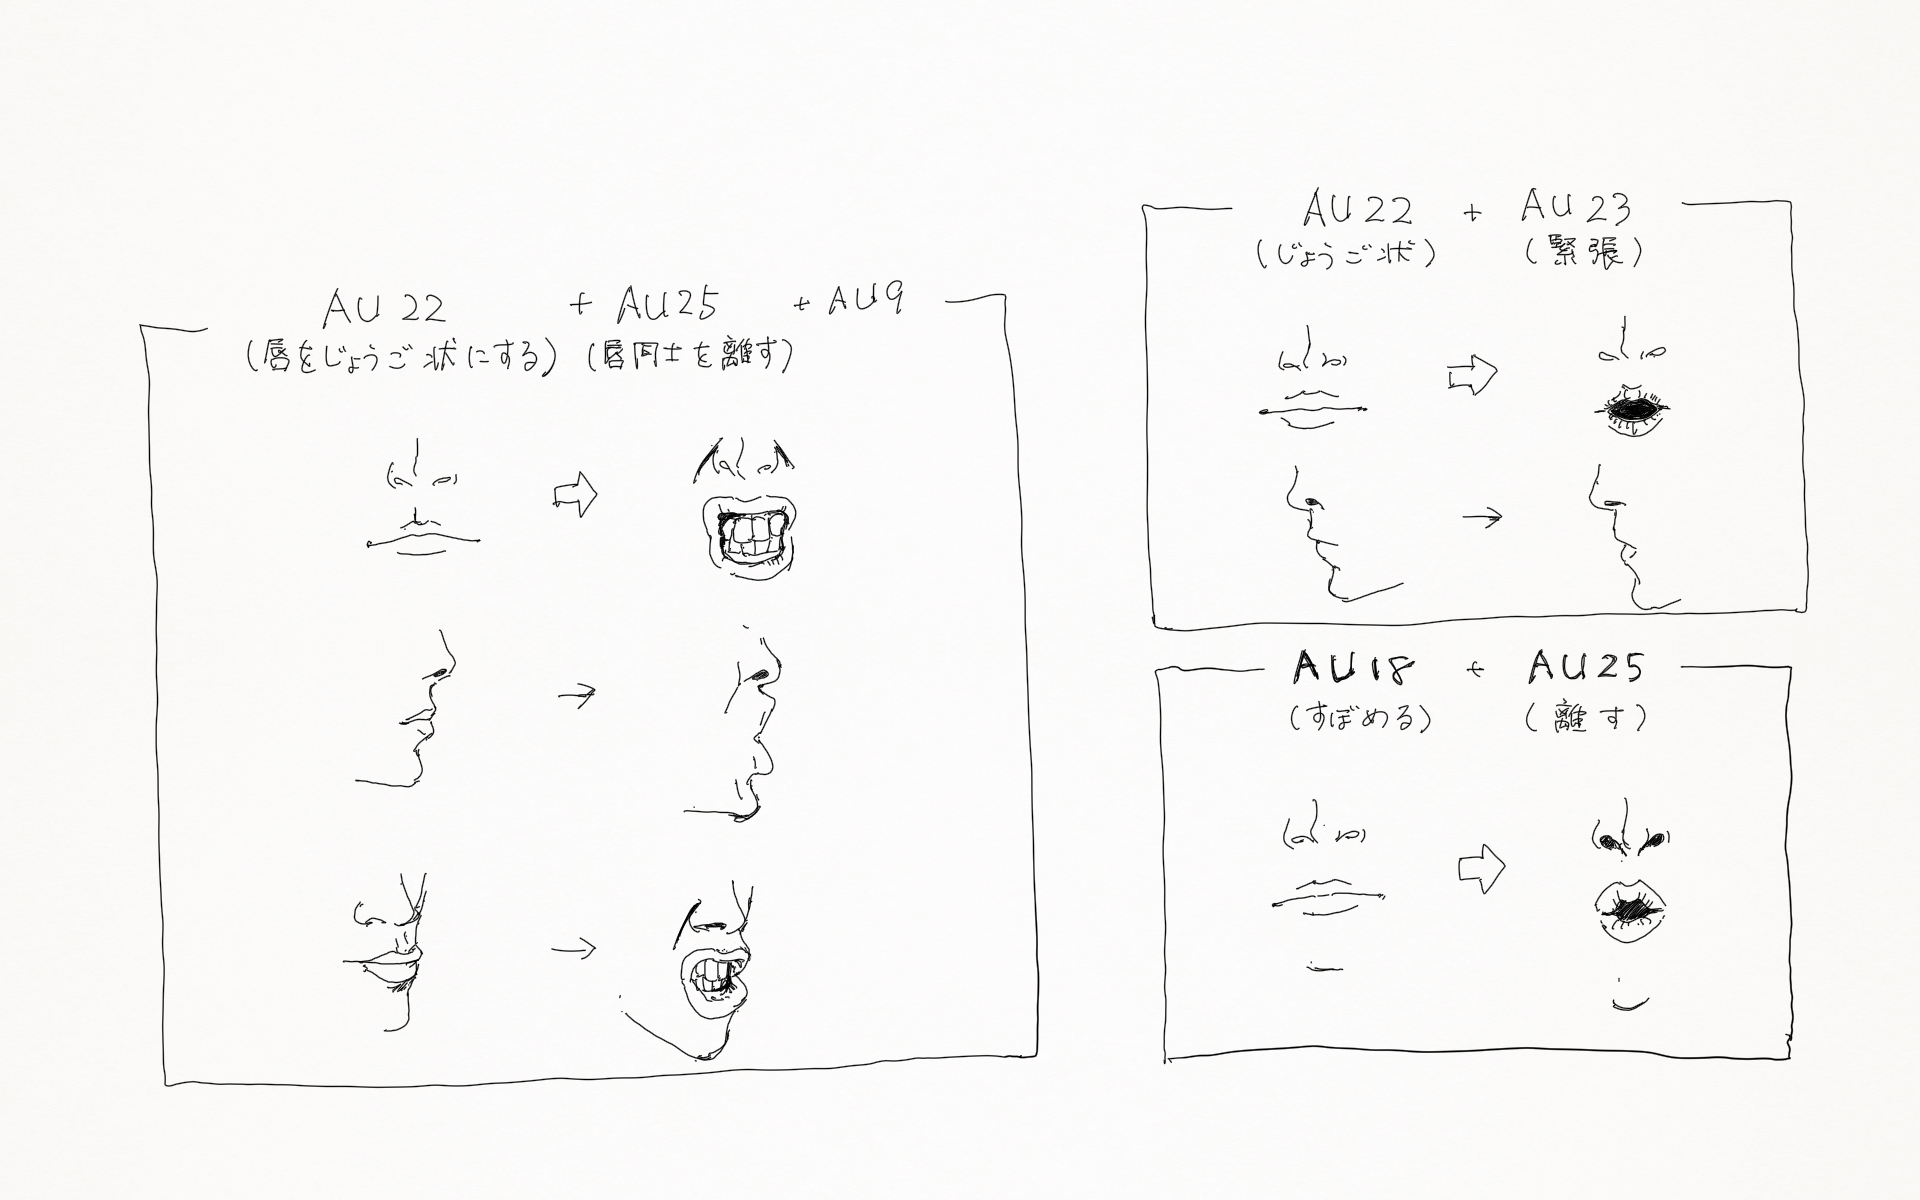 AU 22 + AU25 + AU9
(唇をじょうご状にする) (唇同士を離す)
AU 22 + AU 23
(じょうご状) (緊張)
AU18 + AU25
(すぼめる) (離す)